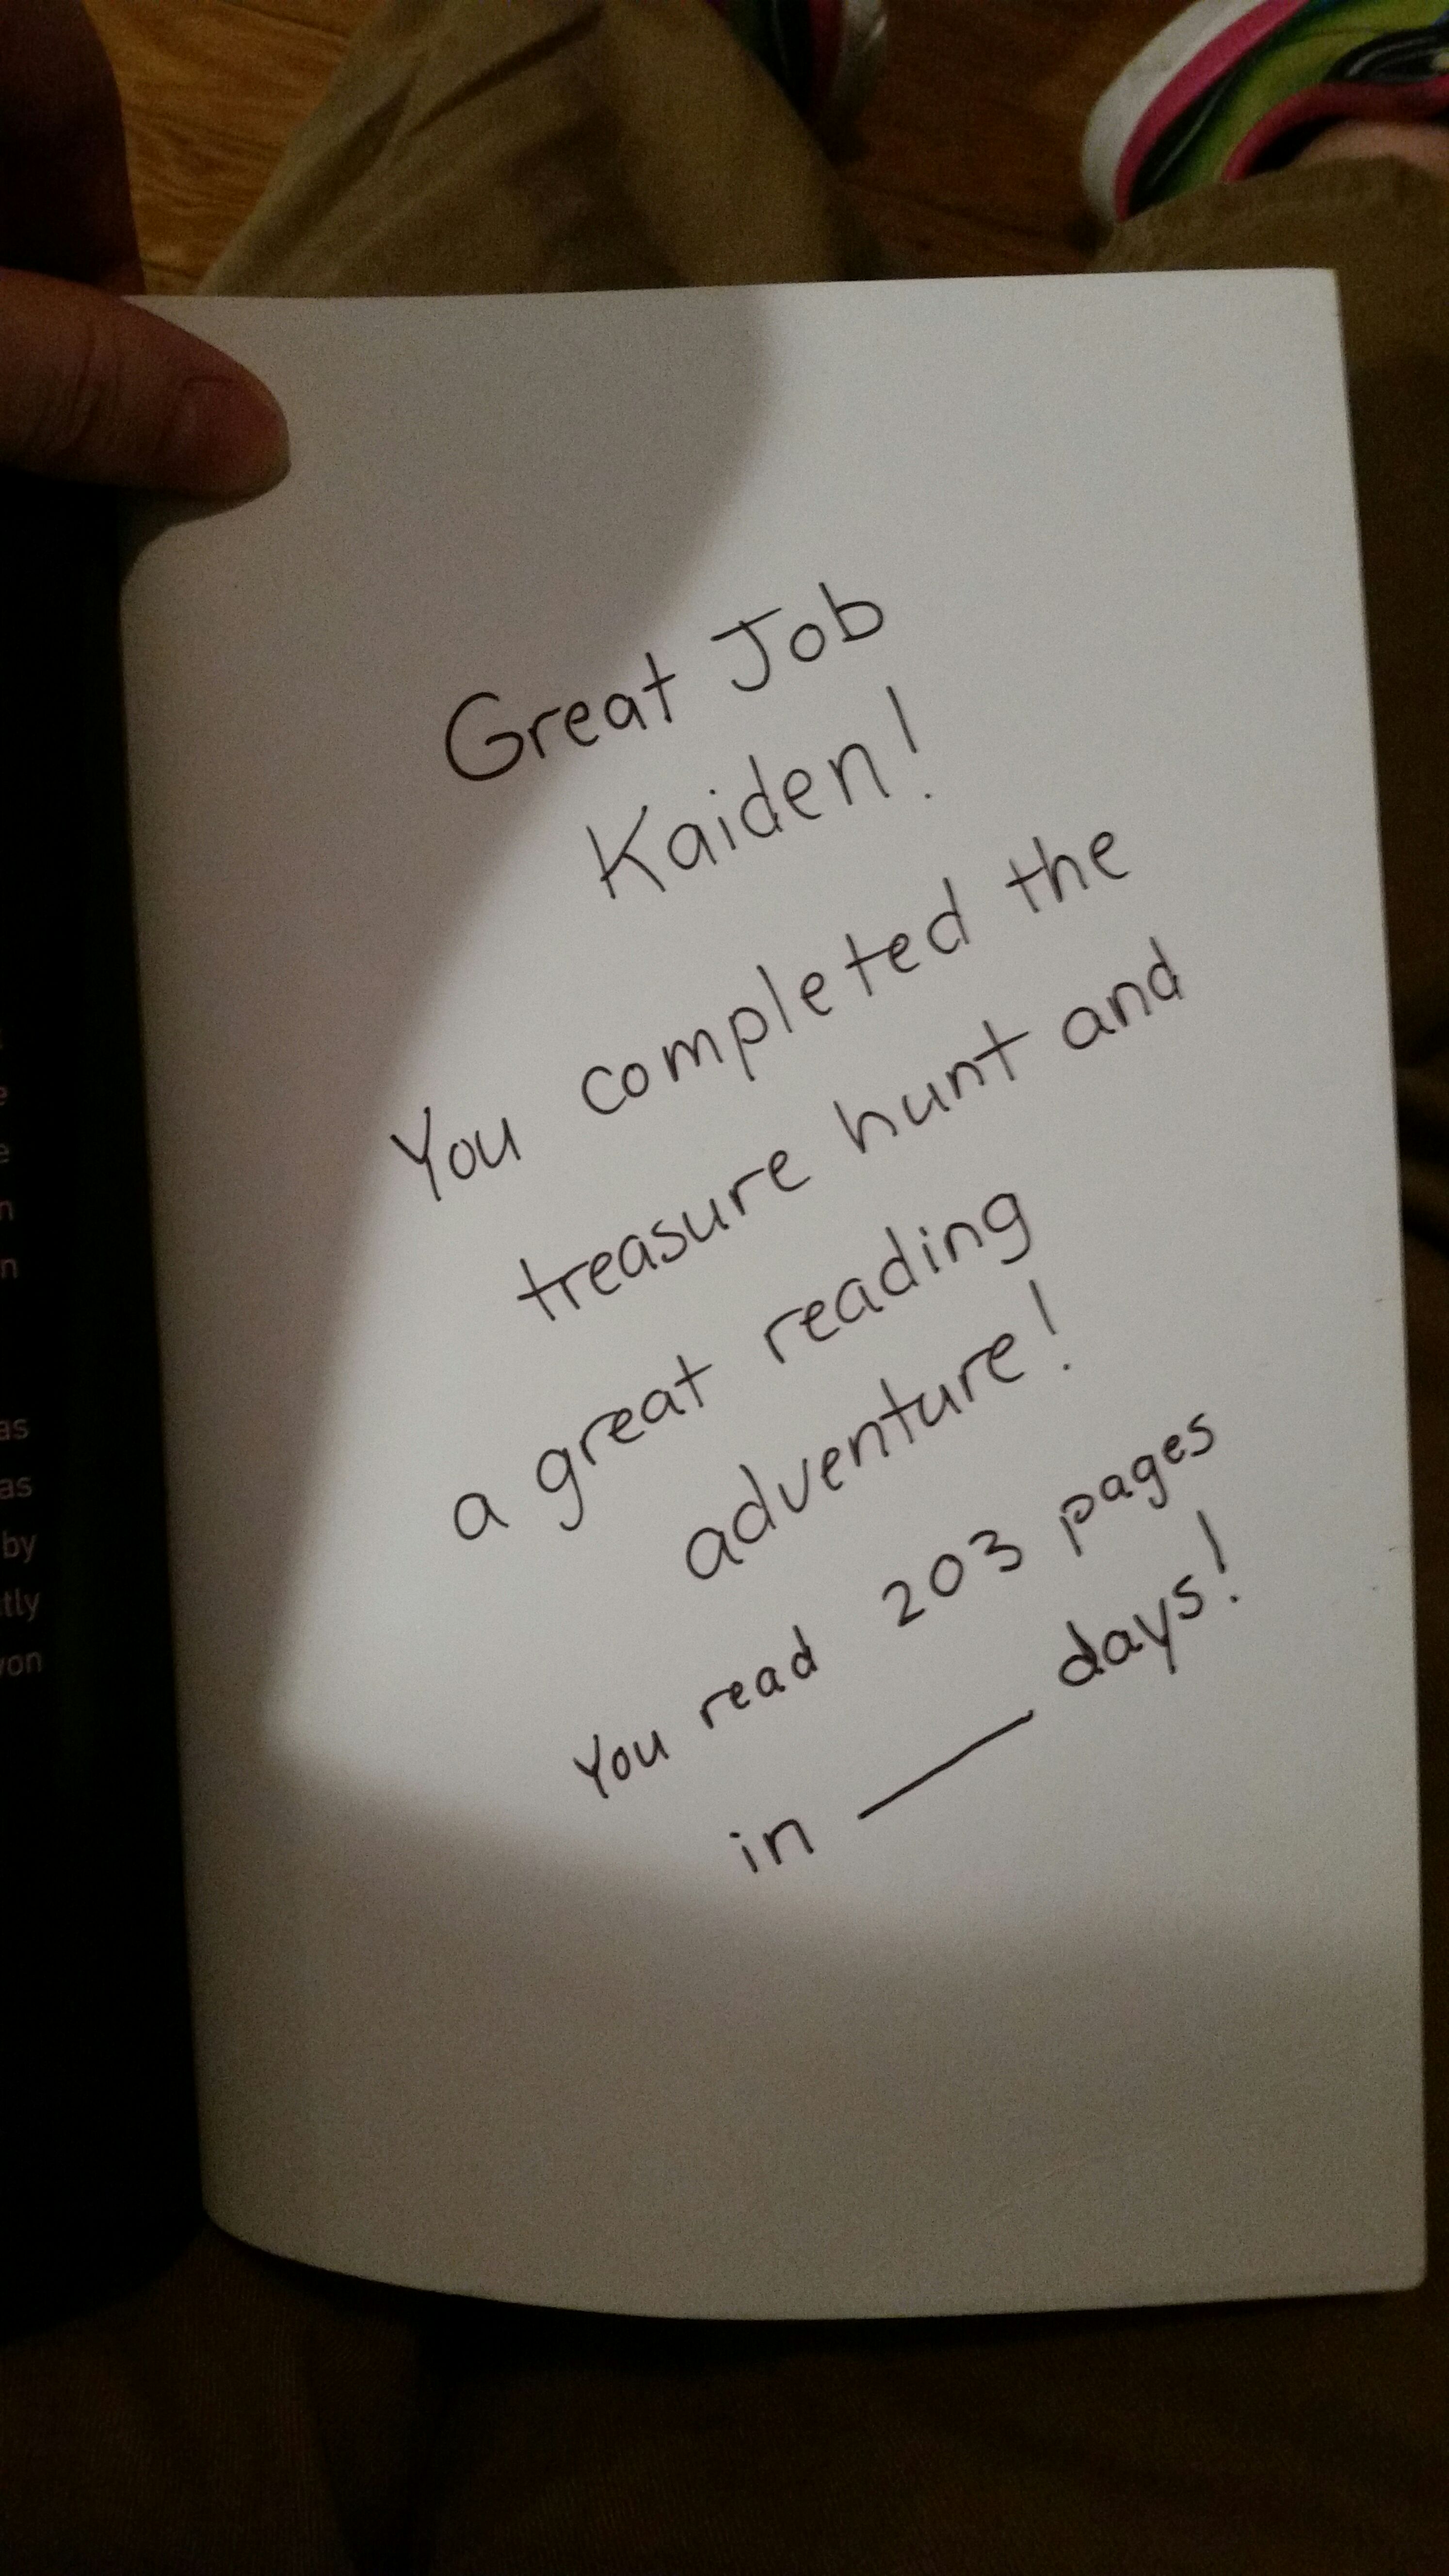 Great Job
Kaiden!
You completed the
treasure hunt and
a great reading
adventure!
You read 203 pages
in ____ days!
as
as
by
tly
von